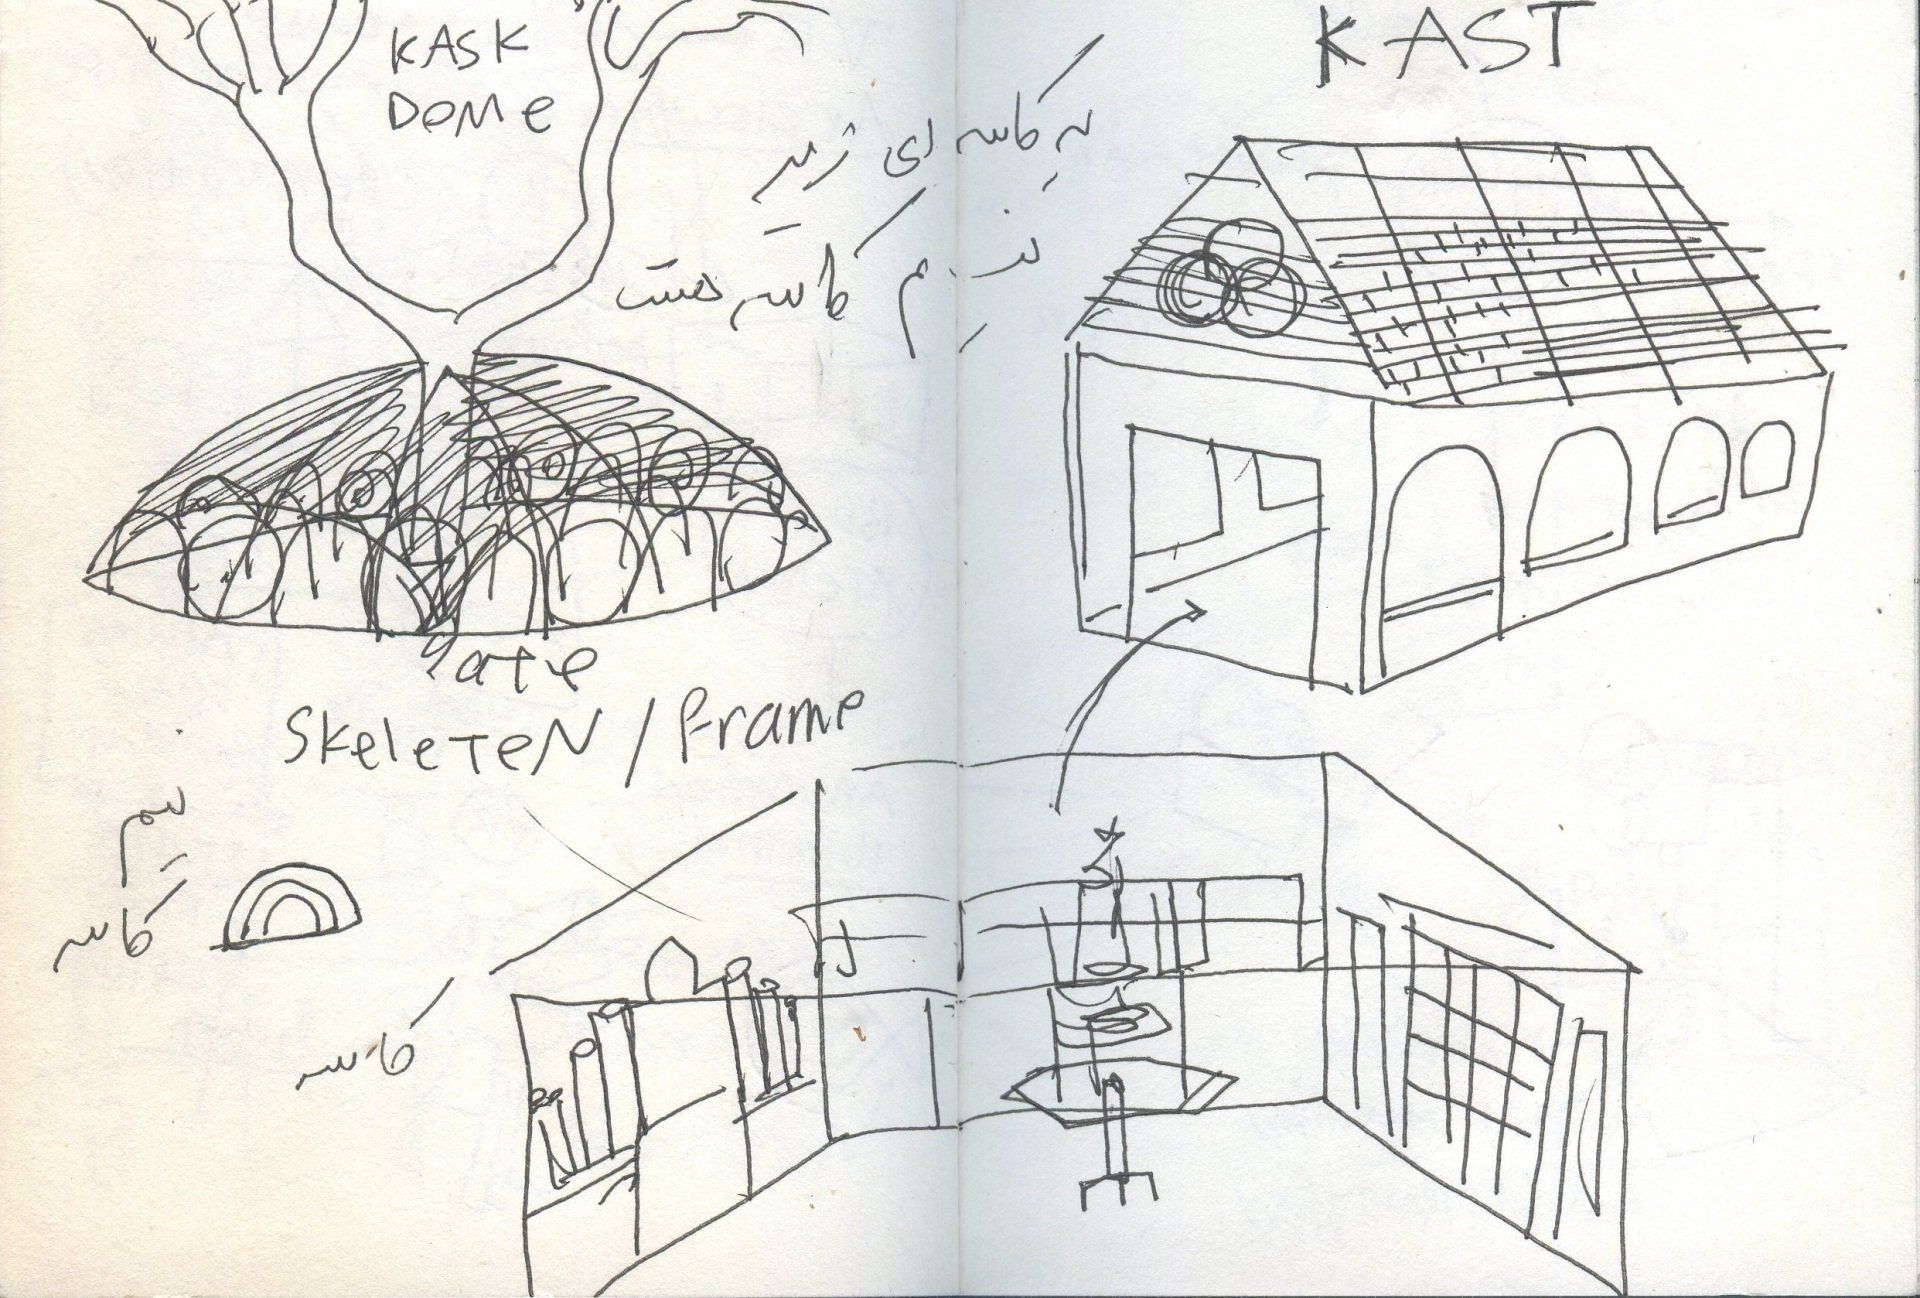 KASK
DOMe
KAST
یه کاسه ای زیر
نیم کاسه هست
gate
SKeleTeN / Frame
نیم
کاسه
کاسه